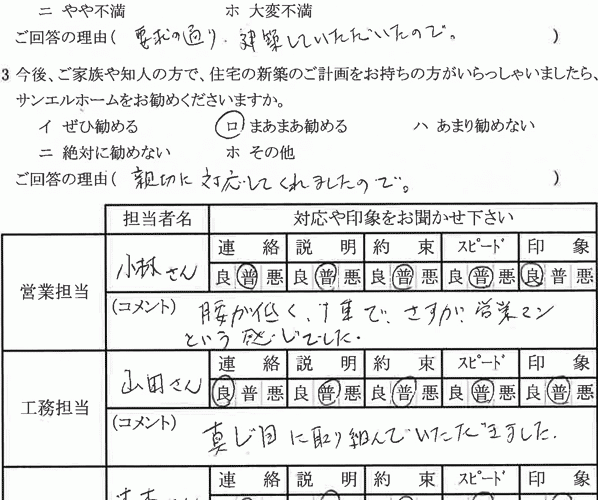 ニ やや不満 ホ 大変不満
ご回答の理由( 要求の通り、建築していただいたので。 )
3 今後、ご家族や知人の方で、住宅の新築のご計画をお持ちの方がいらっしゃいましたら、
サンエルホームをお勧めくださいますか。
イ ぜひ勧める ロ まあまあ勧める ハ あまり勧めない
ニ 絶対に勧めない ホ その他
ご回答の理由( 親切に対応してくれましたので。 )
担当者名 対応や印象をお聞かせ下さい
営業担当 小林さん 連絡 説明 約束 スピード 印象
良 普 悪 良 普 悪 良 普 悪 良 普 悪 良 普 悪
(コメント) 腰が低く、で、さすが、営業マン
という感じでした。
工務担当 山田さん 連絡 説明 約束 スピード 印象
良 普 悪 良 普 悪 良 普 悪 良 普 悪 良 普 悪
(コメント) 真じ目に取り組んでいただきました。
連絡 説明 約束 スピード 印象